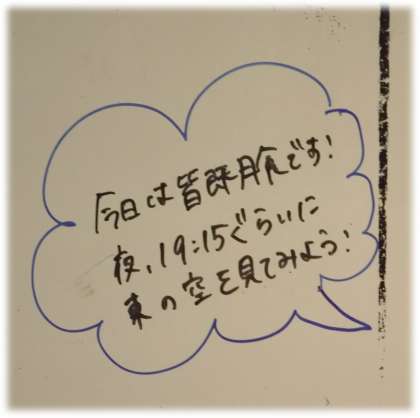 今日は皆既月食です!
夜、19:15ぐらいに
東の空を見てみよう!